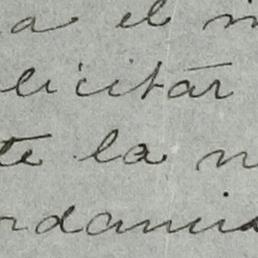 a el
licitar
te la n
rdancia